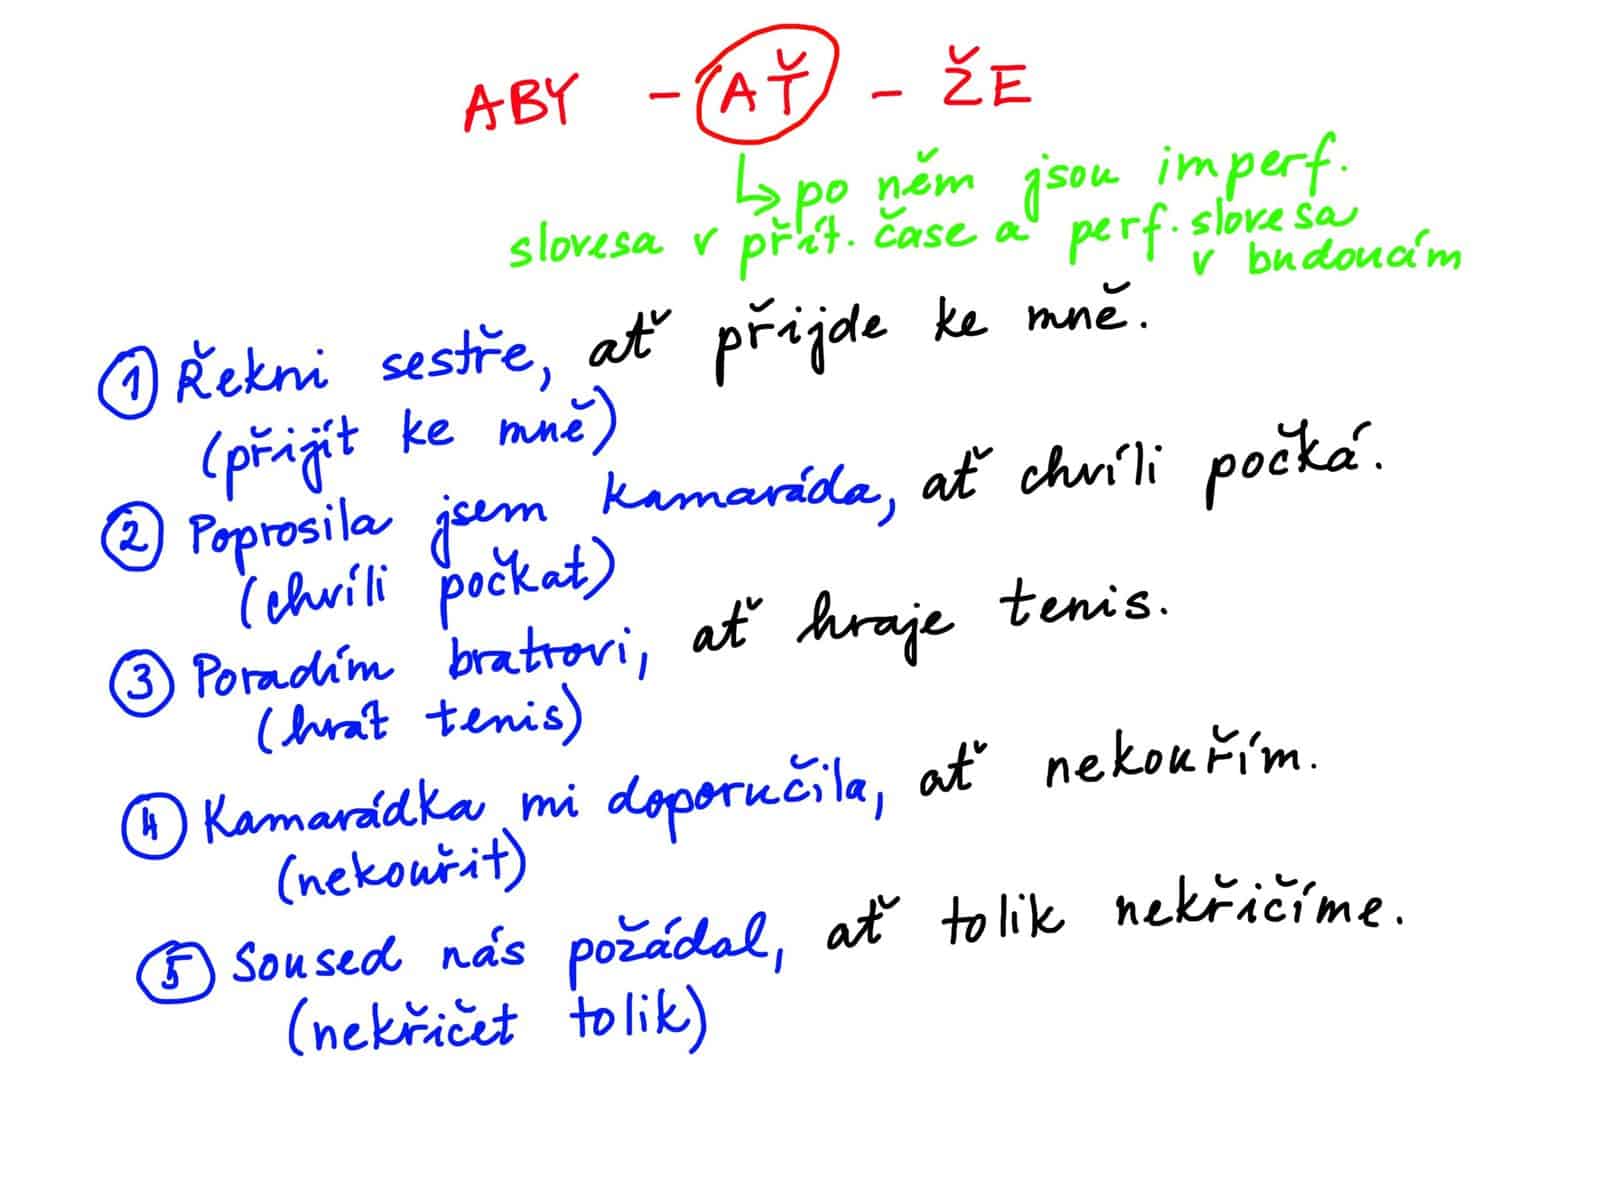 ABY - AŤ - ŽE
↳ po něm jsou imperf.
slovesa v přít. čase a perf. slovesa
v budoucím
① Řekni sestře, ať přijde ke mně.
(přijít ke mně)
② Poprosila jsem kamaráda, ať chvíli počká.
(chvíli počkat)
③ Poradím bratrovi, ať hraje tenis.
(hrát tenis)
④ Kamarádka mi doporučila, ať nekouřím.
(nekouřit)
⑤ Soused nás požádal, ať tolik nekřičíme.
(nekřičet tolik)